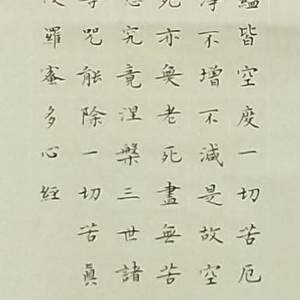 蘊皆空度一切苦厄
淨不增不減是故空
死亦無老死盡無苦
想究竟涅槃三世諸
等呪能除一切苦眞
羅蜜多心經